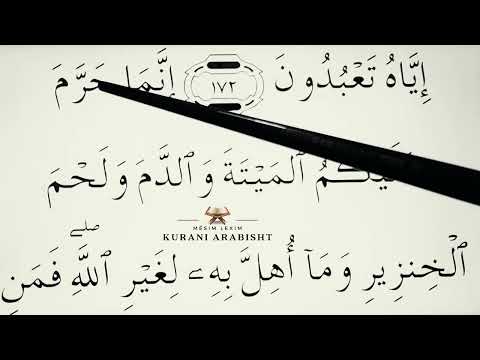 إِيَّاهُ تَعْبُدُونَ ١٧٢ إِنَّمَا حَرَّمَ
ٱلْمَيْتَةَ وَٱلدَّمَ وَلَحْمَ
MËSIM LEXIM
KURANI ARABISHT
ٱلْخِنزِيرِ وَمَآ أُهِلَّ بِهِۦ لِغَيْرِ ٱللَّهِۖ فَمَنِ